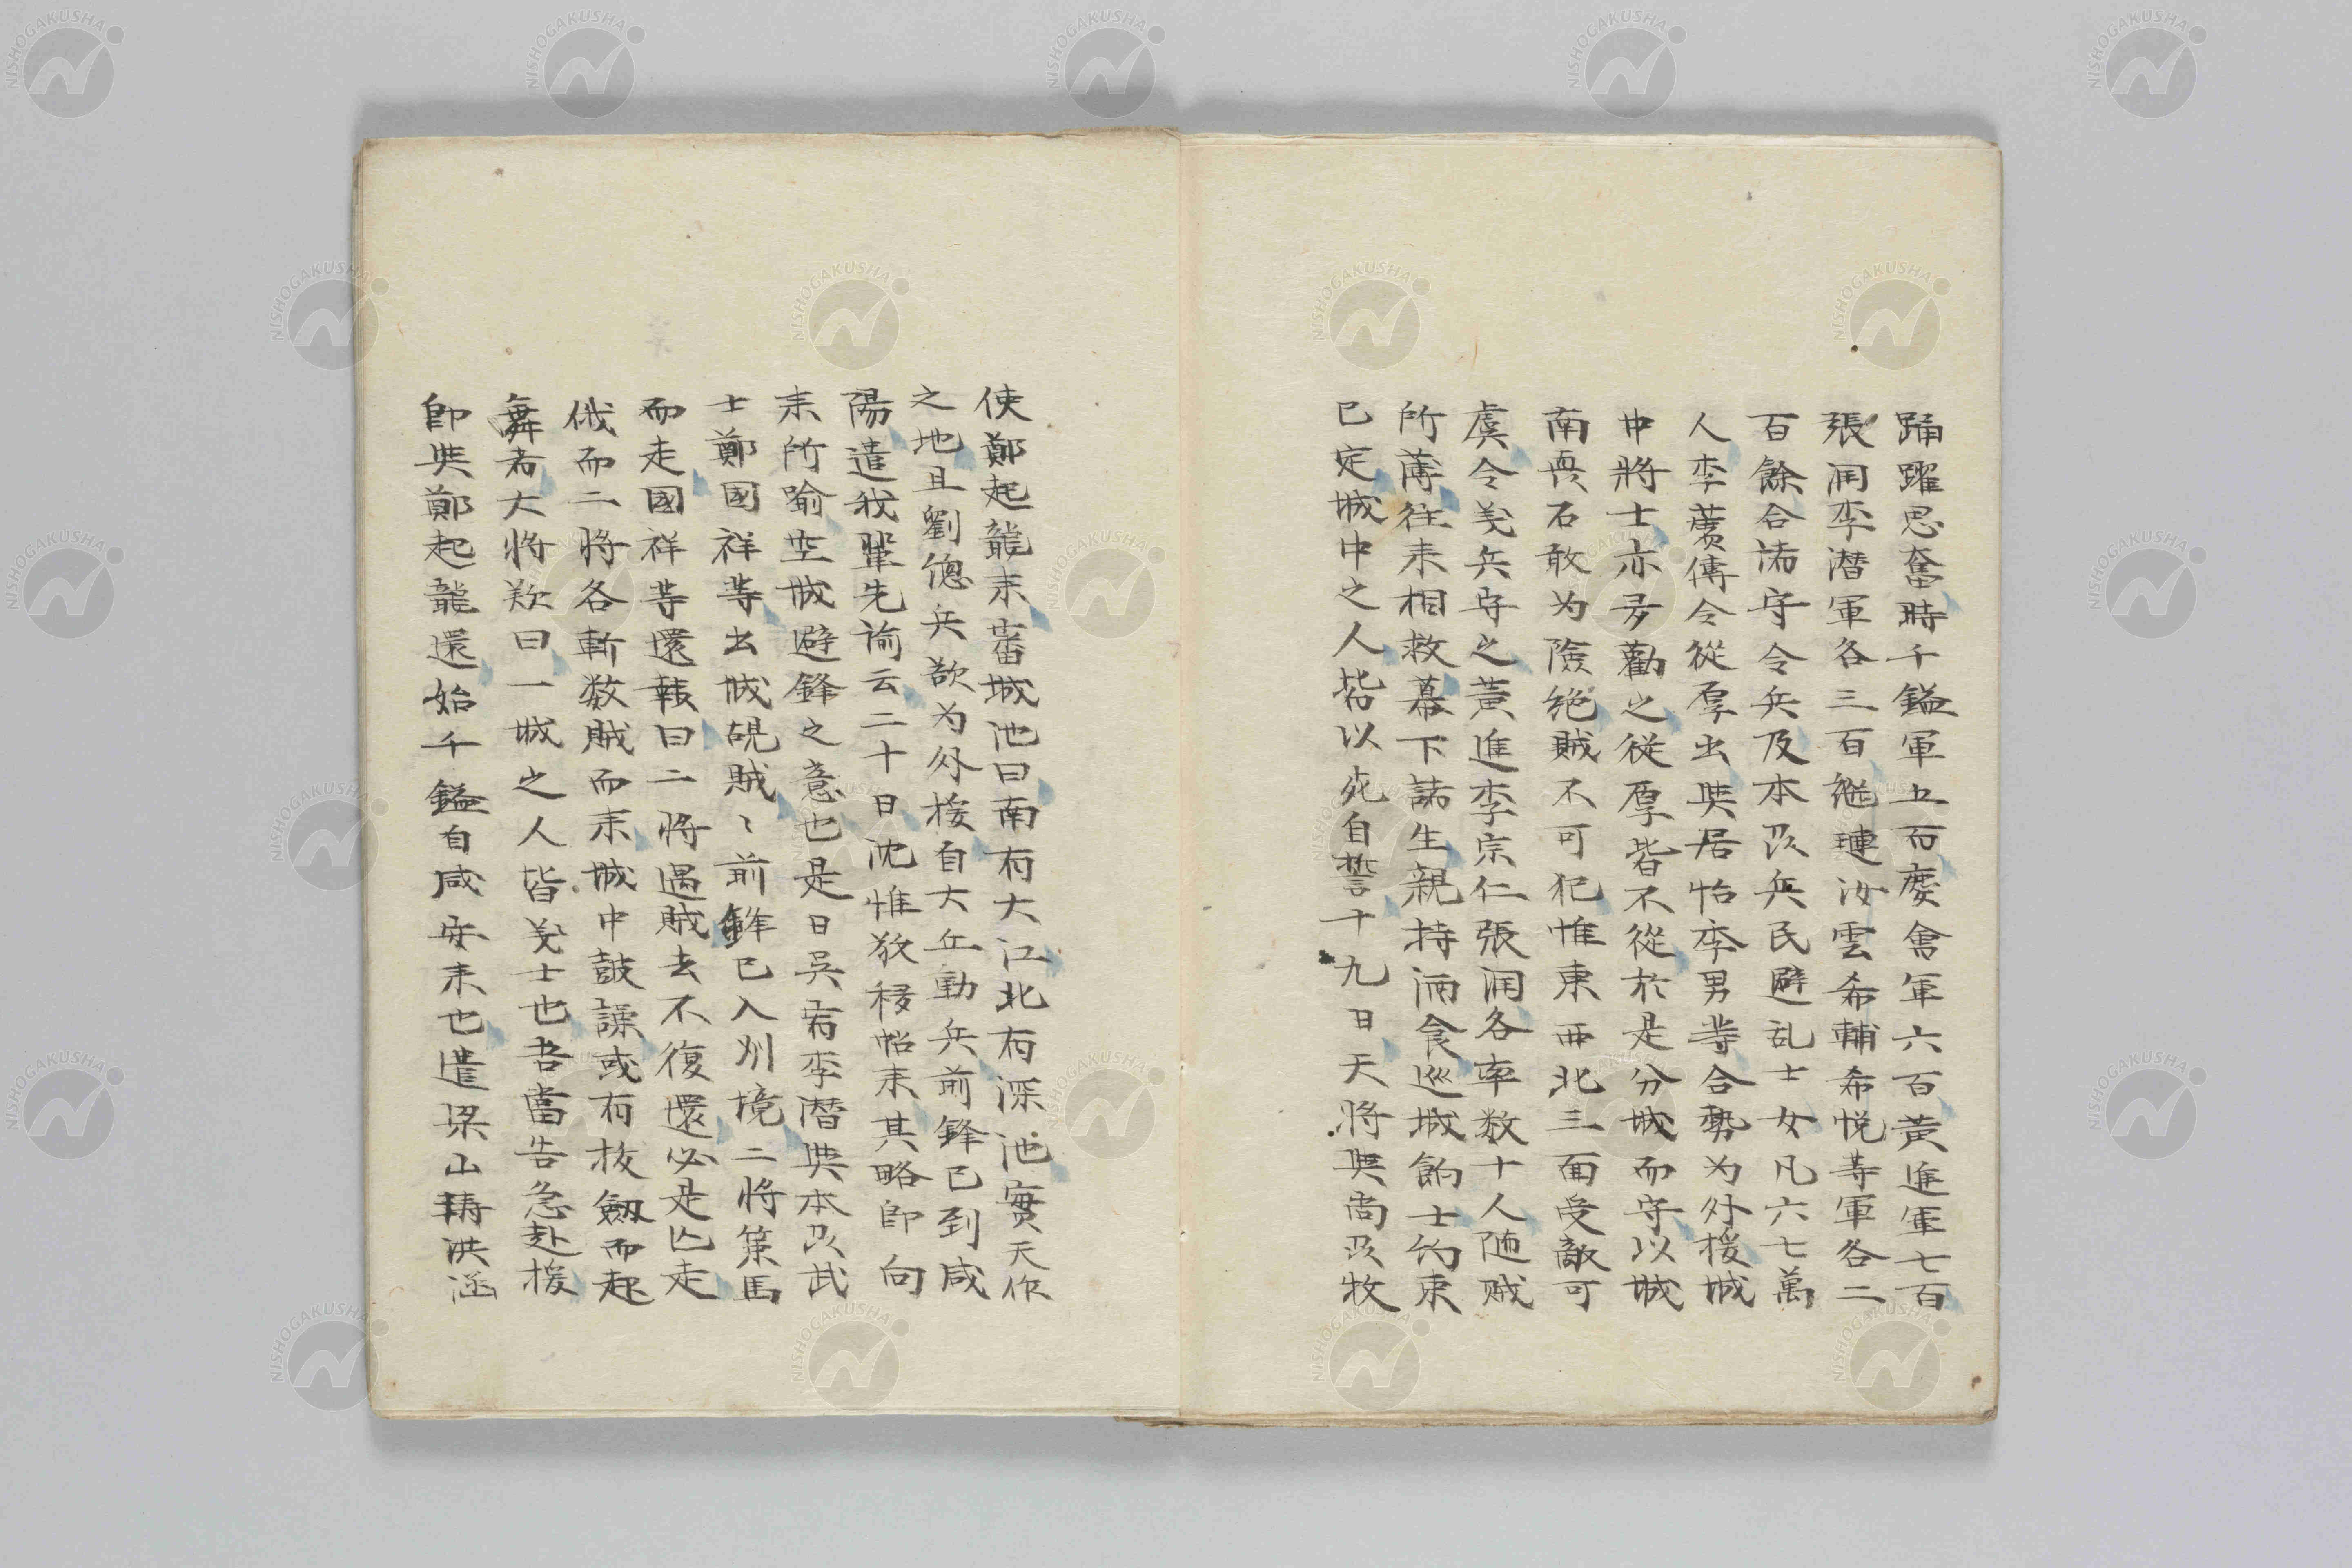 踊躍思奮時千鎰軍五百慶會軍六百黃進軍七百
張润李潜軍各三百継璉汝雲希輔希悦等軍各二
百餘合諸守令兵及本州兵民避乱士女凡六七萬
人李薲傳令從厚出與居怡李男等合勢为外援城
中將士亦多勸之從厚皆不從於是分城而守以城
南矗石敢为險絶賊不可犯惟東西北三面受敵可
虞令义兵守之黃進李宗仁張润各率数十人随贼
所薄往来相救幕下諸生親持酒食巡城餉士約束
已定城中之人皆以死自誓十九日天將與尚州牧
使鄭起龍来審城池曰南有大江北有深池實天作
之地且劉總兵欲为外援自大丘動兵前鋒已到咸
陽遣我輩先諭云二十日沈惟敬移帖来其略即向
来所喻空城避鋒之意也是日吳宥李潜與本州武
士鄭國祥等出城覘賊〻前鋒已入州境二將策馬
而走國祥等還報曰二將遇賊去不復還必是亡走
俄而二將各斬数賊而来城中鼓譟或有拔劔而起
舞者大將歎曰一城之人皆义士也吾當告急赴援
即與鄭起龍還始千鎰自咸安来也遣梁山璹洪涵